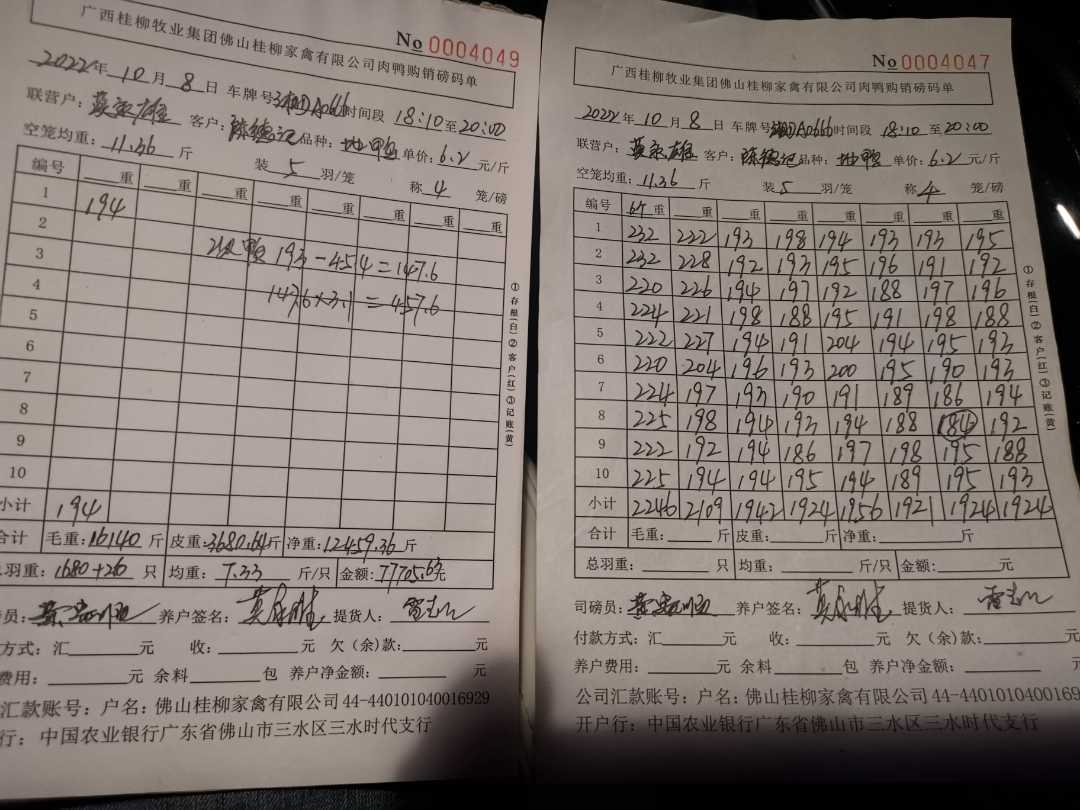 广西桂柳牧业集团佛山桂柳家禽有限公司肉鸭购销磅码单
No 0004049
2022年 10 月 8 日 车牌号 A0666 时间段 18:10 至 20:00
联营户: 客户: 陈德记 品种: 地鸭 单价: 6.2 元/斤
空笼均重: 11.36 斤 装 5 羽/笼 称 4 笼/磅
编号 重 重 重 重 重 重 重 重
1 194
2
3 次鸭 193-45.4=147.6
4 147.6×3.1=457.6
5
6
7
8
9
10
小计 194
合计 毛重: 16140 斤 皮重: 3680.64 斤 净重: 12459.36 斤
总羽重: 1680+20 只 均重: 7.33 斤/只 金额: 77705.63 元
司磅员: 养户签名: 提货人:
付款方式: 汇 元 收: 元 欠(余)款: 元
养户费用: 元 余料 包 养户净金额: 元
公司汇款账号: 户名: 佛山桂柳家禽有限公司 44-440101040016929
开户行: 中国农业银行广东省佛山市三水区三水时代支行
①存根(白)②客户(红)③记账(黄)
广西桂柳牧业集团佛山桂柳家禽有限公司肉鸭购销磅码单
No 0004047
2022年 10 月 8 日 车牌号 A0666 时间段 18:10 至 20:00
联营户: 客户: 陈德记 品种: 地鸭 单价: 6.2 元/斤
空笼均重: 11.36 斤 装 5 羽/笼 称 4 笼/磅
编号 重 重 重 重 重 重 重 重
1 232 222 193 198 194 193 193 195
2 232 228 192 193 195 196 191 192
3 220 226 194 197 192 188 197 196
4 224 221 198 188 195 191 198 188
5 222 227 194 191 204 194 195 193
6 220 204 196 193 200 195 190 193
7 224 197 193 190 191 189 186 194
8 225 198 194 193 194 188 184 192
9 222 192 194 186 197 198 195 188
10 225 194 194 195 194 189 195 193
小计 2246 2109 1942 1924 1956 1921 1924 1924
合计 毛重: 斤 皮重: 斤 净重: 斤
总羽重: 只 均重: 斤/只 金额: 元
司磅员: 养户签名: 提货人:
付款方式: 汇 元 收: 元 欠(余)款: 元
养户费用: 元 余料 包 养户净金额: 元
公司汇款账号: 户名: 佛山桂柳家禽有限公司 44-4401010400169
开户行: 中国农业银行广东省佛山市三水区三水时代支行
①存根(白)②客户(红)③记账(黄)